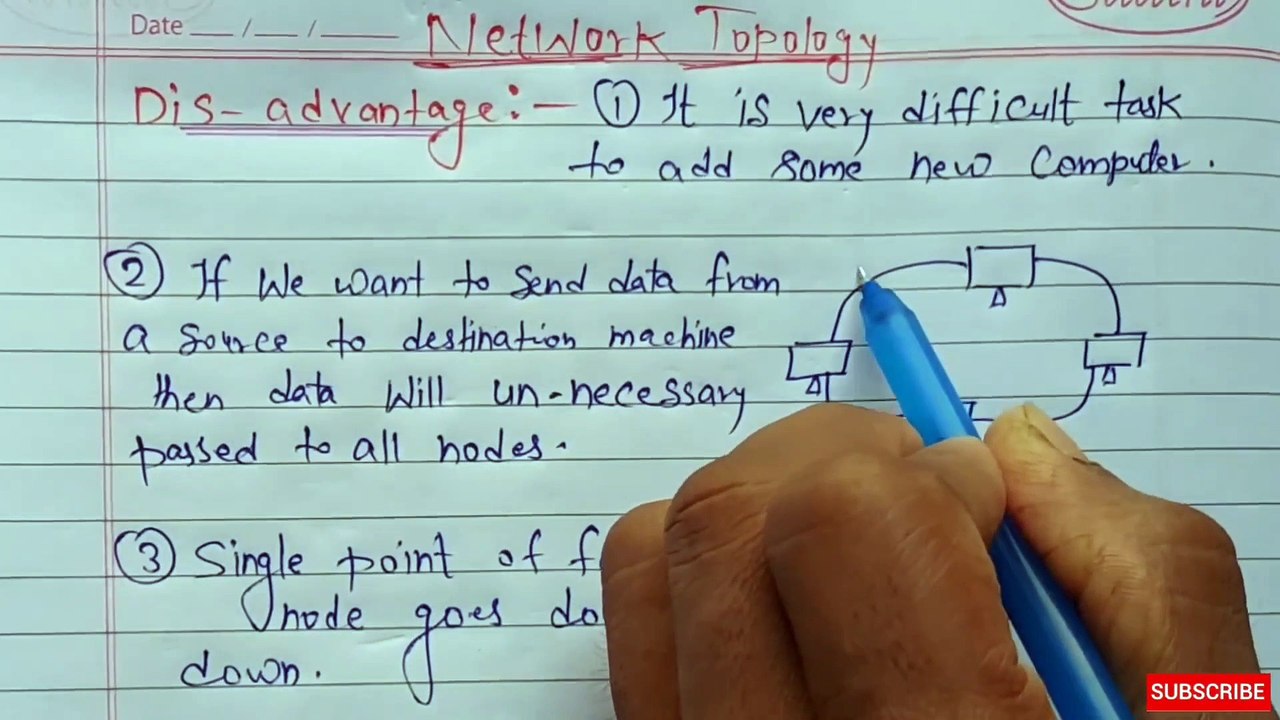 Date __/__/____
Network Topology
Dis-advantage:- ① It is very difficult task
to add some new Computer.
② If we want to send data from
a source to destination machine
then data will un-necessary
passed to all nodes.
③ Single point of
node goes
down.
SUBSCRIBE